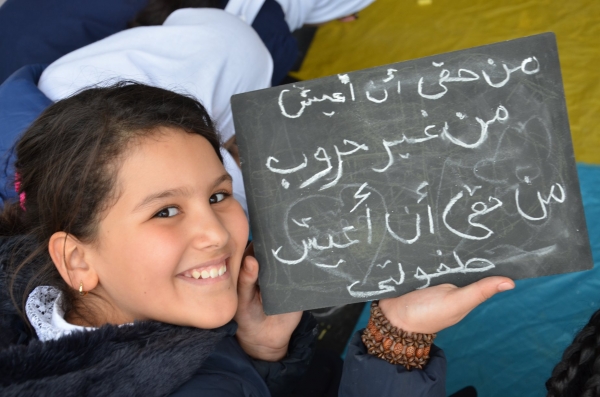 من حقي أن أعيش
من غير حروب
من حقي أن أعيش
طفولتي